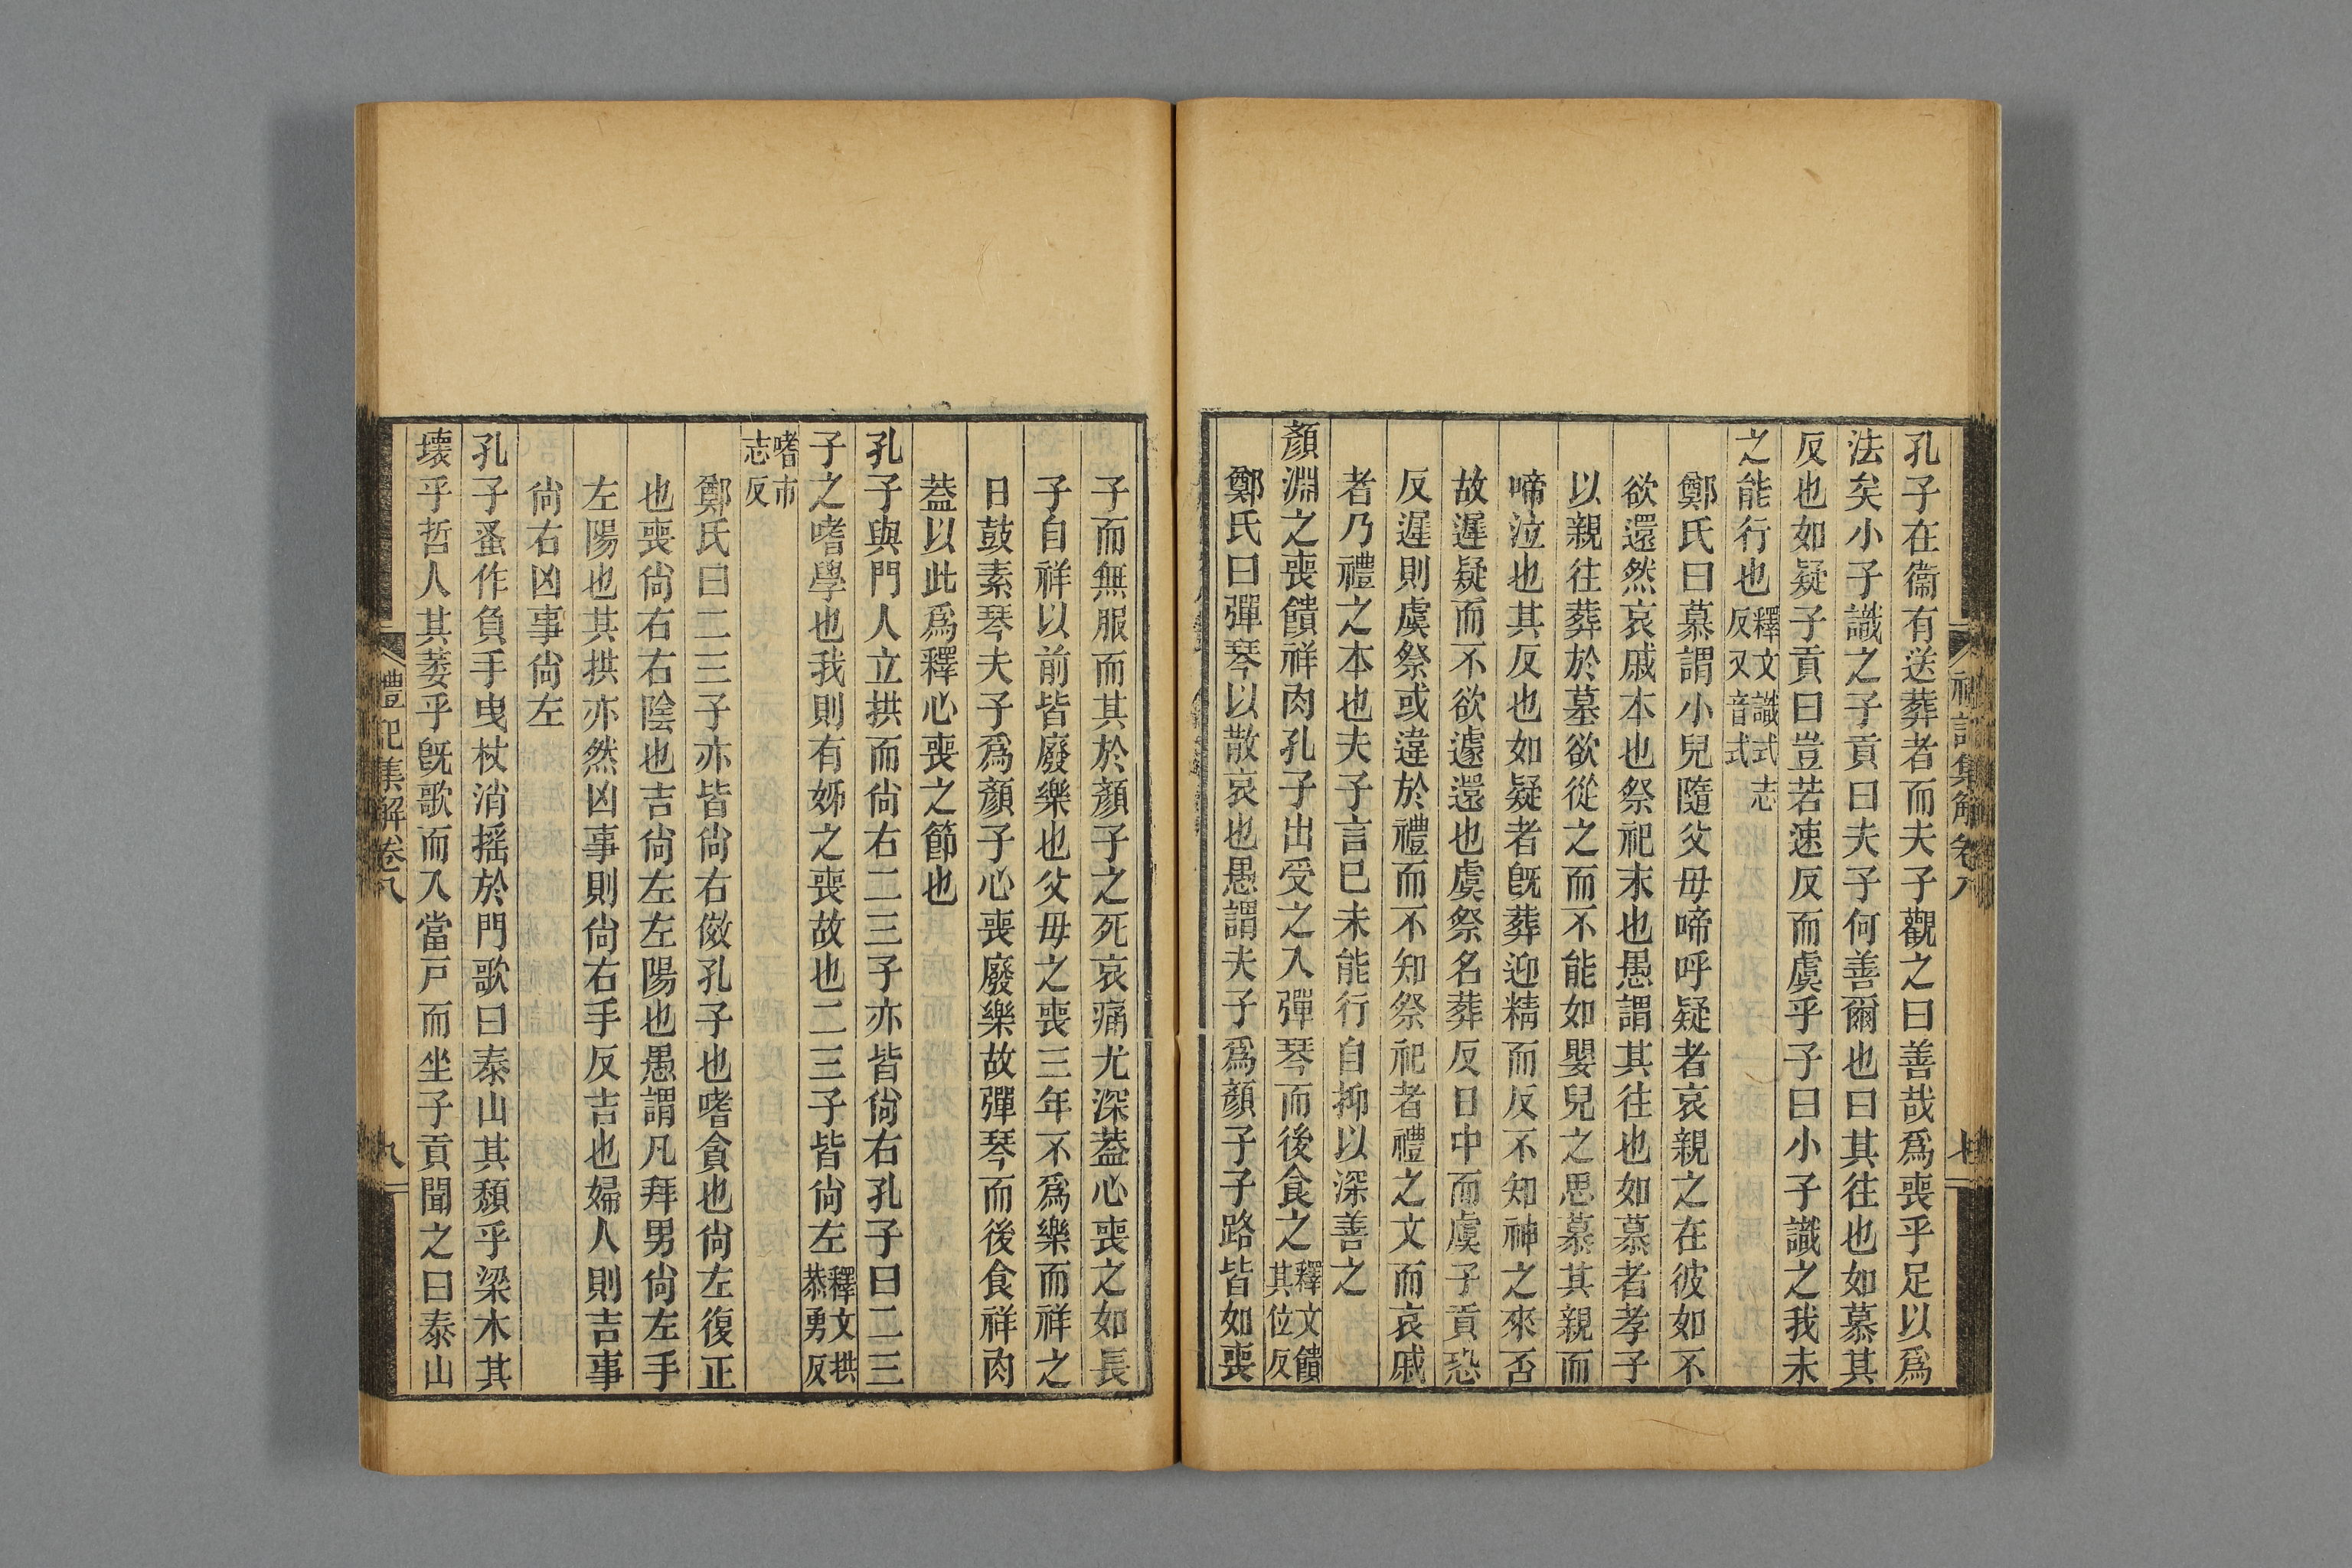 禮記集解卷八
孔子在衞有送葬者而夫子觀之曰善哉爲喪乎足以爲
法矣小子識之子貢曰夫子何善爾也曰其往也如慕其
反也如疑子貢曰豈若速反而虞乎子曰小子識之我未
之能行也釋文識式志
反又音式
鄭氏曰慕謂小兒隨父母啼呼疑者哀親之在彼如不
欲還然哀戚本也祭祀末也愚謂其往也如慕者孝子
以親往葬於墓欲從之而不能如嬰兒之思慕其親而
啼泣也其反也如疑者旣葬迎精而反不知神之來否
故遲疑而不欲遽還也虞祭名葬反日中而虞子貢恐
反遲則虞祭或違於禮而不知祭祀者禮之文而哀戚
者乃禮之本也夫子言已未能行自抑以深善之
顏淵之喪饋祥肉孔子出受之入彈琴而後食之釋文饋
其位反
鄭氏曰彈琴以散哀也愚謂夫子爲顏子子路皆如喪
子而無服而其於顏子之死哀痛尤深葢心喪之如長
子自祥以前皆廢樂也父母之喪三年不爲樂而祥之
日鼓素琴夫子爲顏子心喪廢樂故彈琴而後食祥肉
葢以此爲釋心喪之節也
孔子與門人立拱而尙右二三子亦皆尙右孔子曰二三
子之嗜學也我則有姊之喪故也二三子皆尙左釋文拱
恭勇反
嗜市
志反
鄭氏曰二三子亦皆尙右倣孔子也嗜貪也尙左復正
也喪尙右右陰也吉尙左左陽也愚謂凡拜男尙左手
左陽也其拱亦然凶事則尙右手反吉也婦人則吉事
尙右凶事尙左
孔子蚤作負手曳杖消摇於門歌曰泰山其頹乎梁木其
壞乎哲人其萎乎旣歌而入當戶而坐子貢聞之曰泰山
禮記集解卷八
九